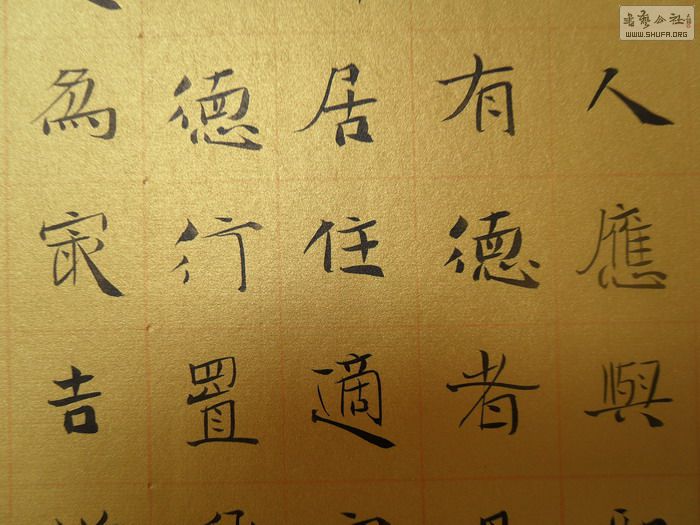 人應與
有德者
居住適
德行置
為㝡吉
書藝公社
WWW.SHUFA.ORG